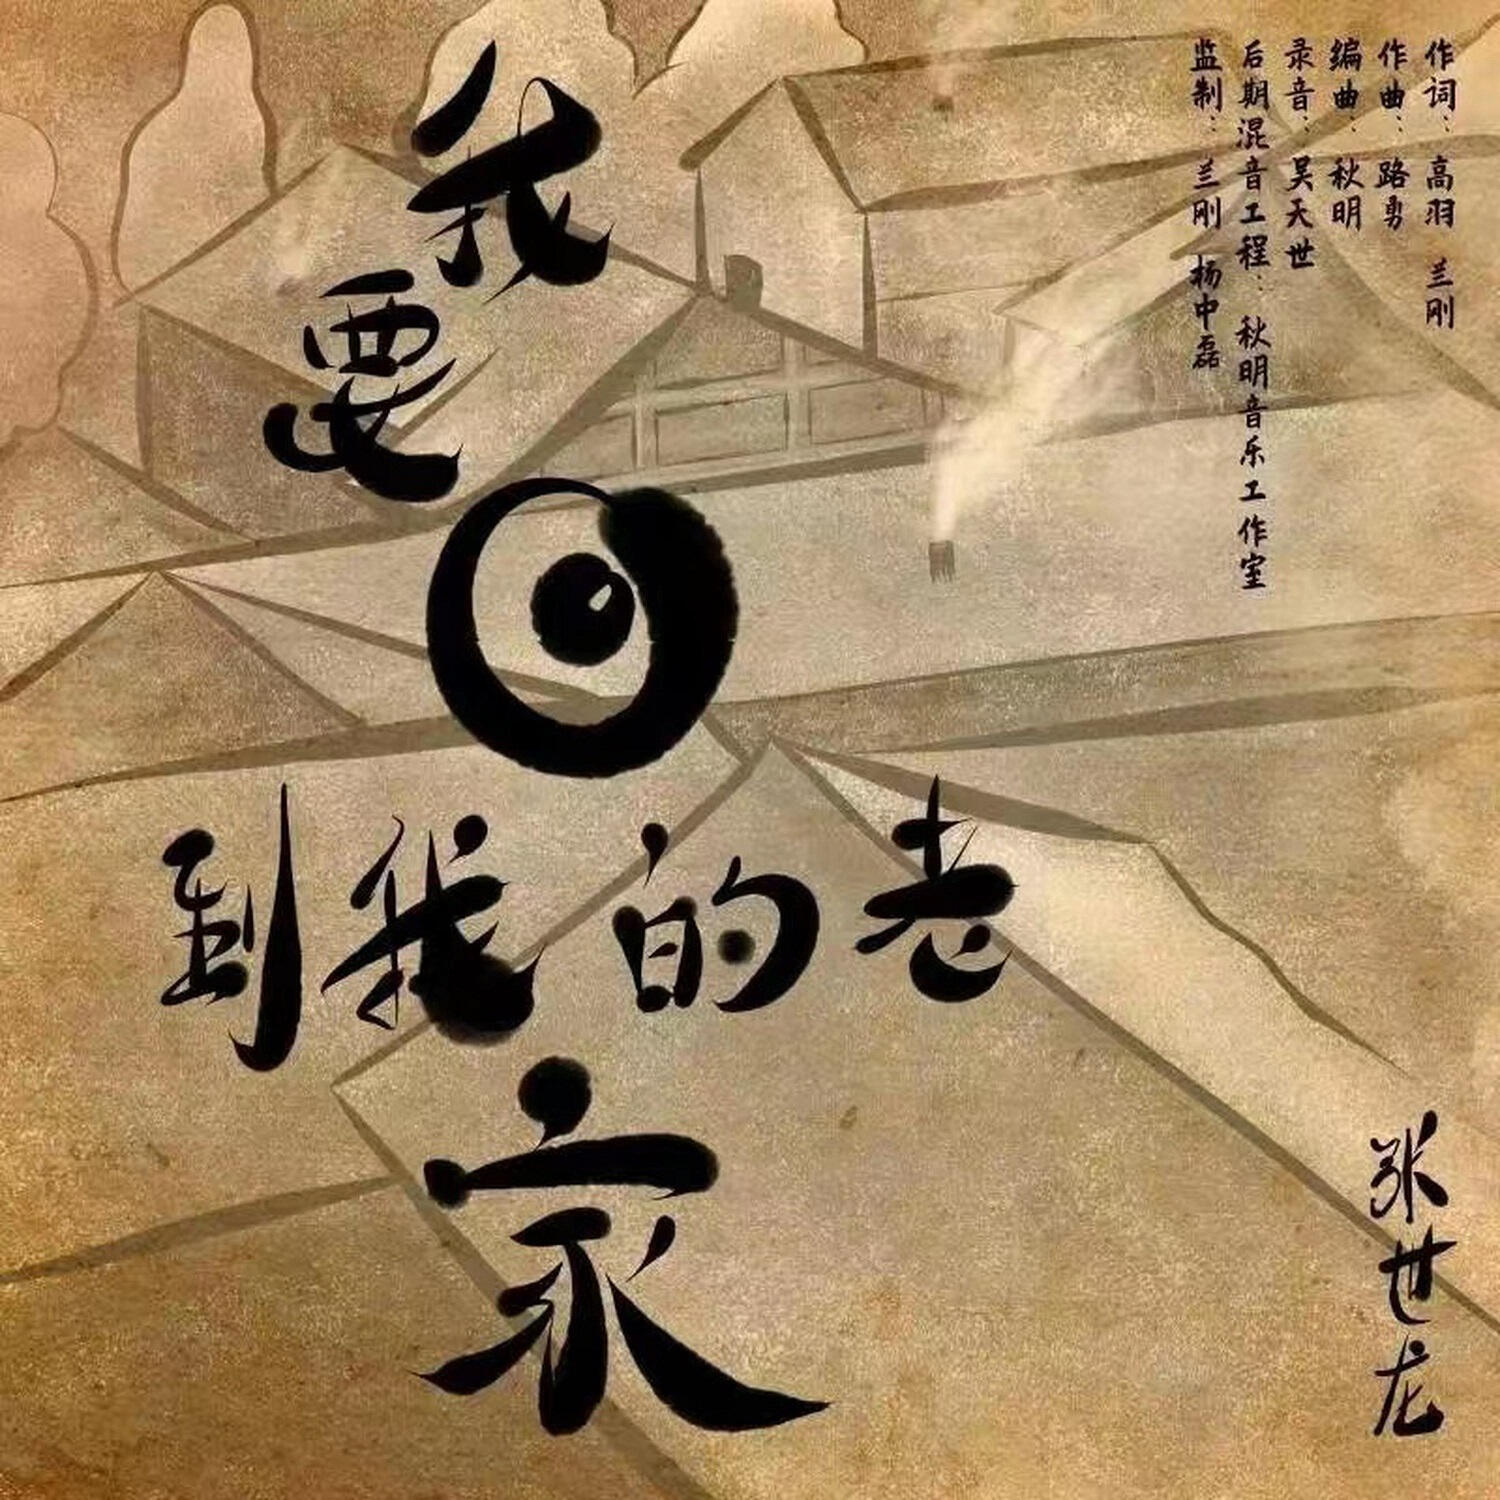 我要回
到我的老
家
作词：高羽 兰刚
作曲：路勇
编曲：秋明
录音：吴天世
后期混音工程：秋明音乐工作室
监制：兰刚 杨中磊
张世龙